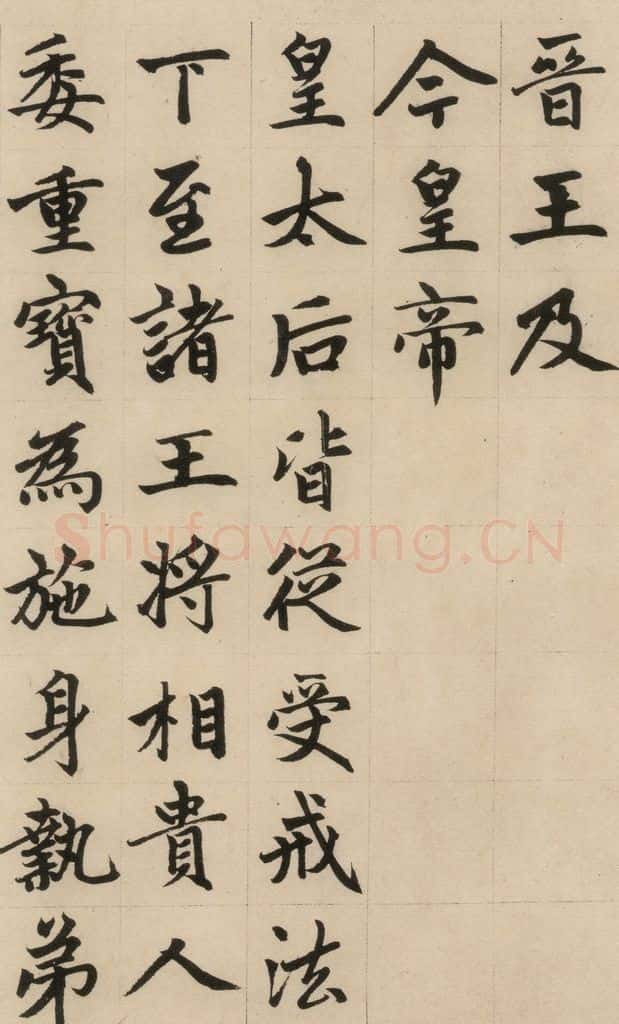 晉王及
今皇帝
皇太后皆從受戒法
下至諸王將相貴人
委重寶為施身執弟
Shufawang.CN